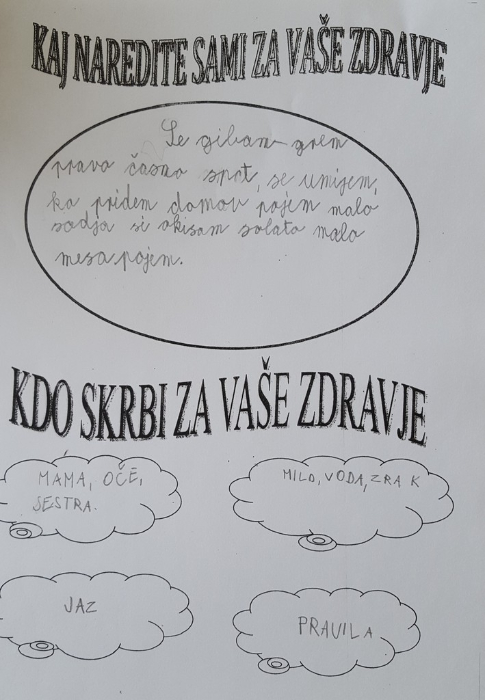 KAJ NAREDITE SAMI ZA VAŠE ZDRAVJE
Se giban grem
pravo časno spat, se umijem,
ko pridem domov pojem malo
sadja si okisam solato malo
mesa pojem.
KDO SKRBI ZA VAŠE ZDRAVJE
MAMA, OČE,
SESTRA.
MILO, VODA, ZRAK
JAZ
PRAVILA